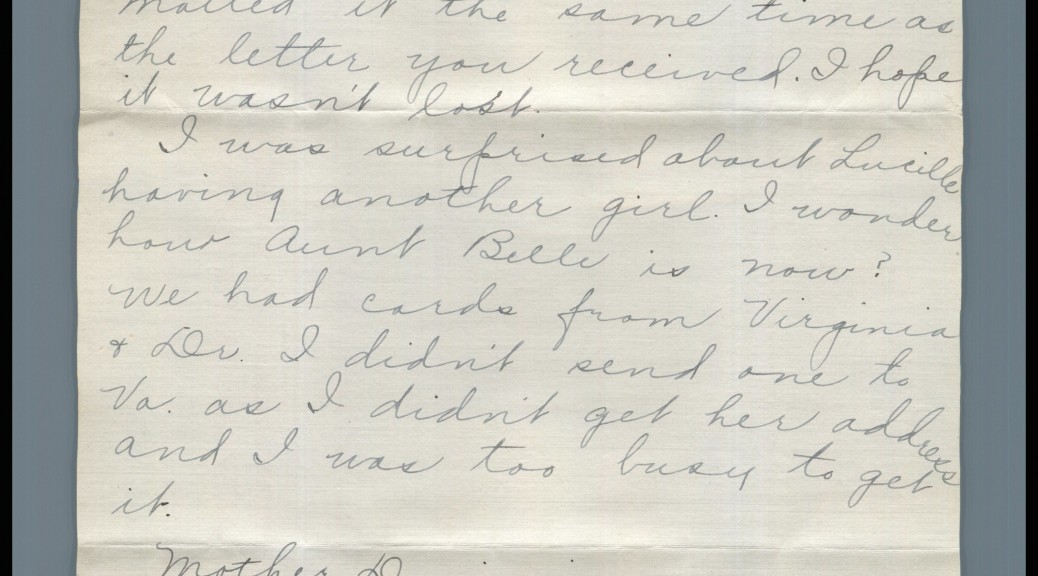 mailed it the same time as
the letter you received. I hope
it wasn't lost.
I was surprised about Lucille
having another girl. I wonder
how Aunt Belle is now?
We had cards from Virginia
& Dr. I didn't send one to
Va. as I didn't get her address
and I was too busy to get
it.
Mother